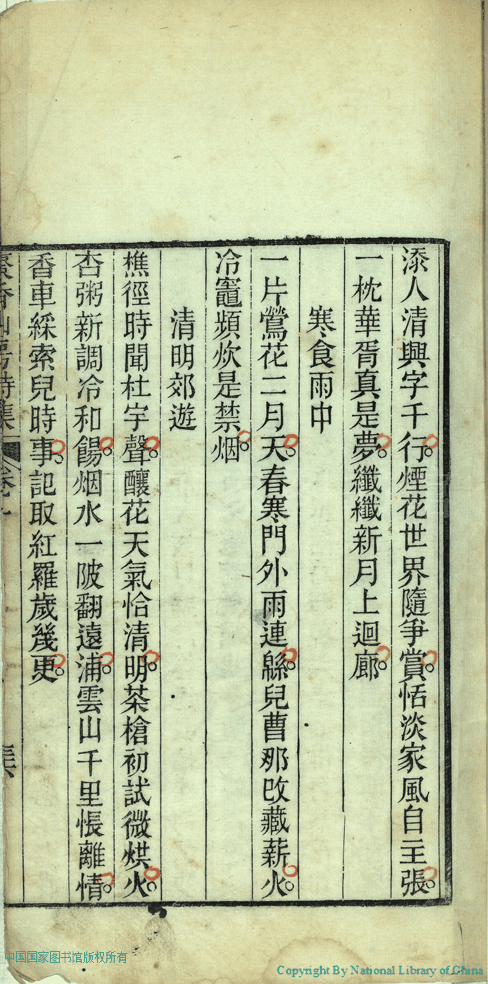 添人清興字千行煙花世界隨爭賞恬淡家風自主張
一枕華胥真是夢纖纖新月上迴廊
寒食雨中
一片鶯花二月天春寒門外雨連緜兒曹那攺藏薪火
冷竈頻炊是禁烟
清明郊遊
樵徑時聞杜宇聲釀花天氣恰清明茶槍初試微烘火
杏粥新調冷和餳烟水一陂翻遠浦雲山千里悵離情
香車綵索兒時事記取紅羅歲幾更
香山房詩集
中国国家图书馆版权所有
Copyright By National Library of China